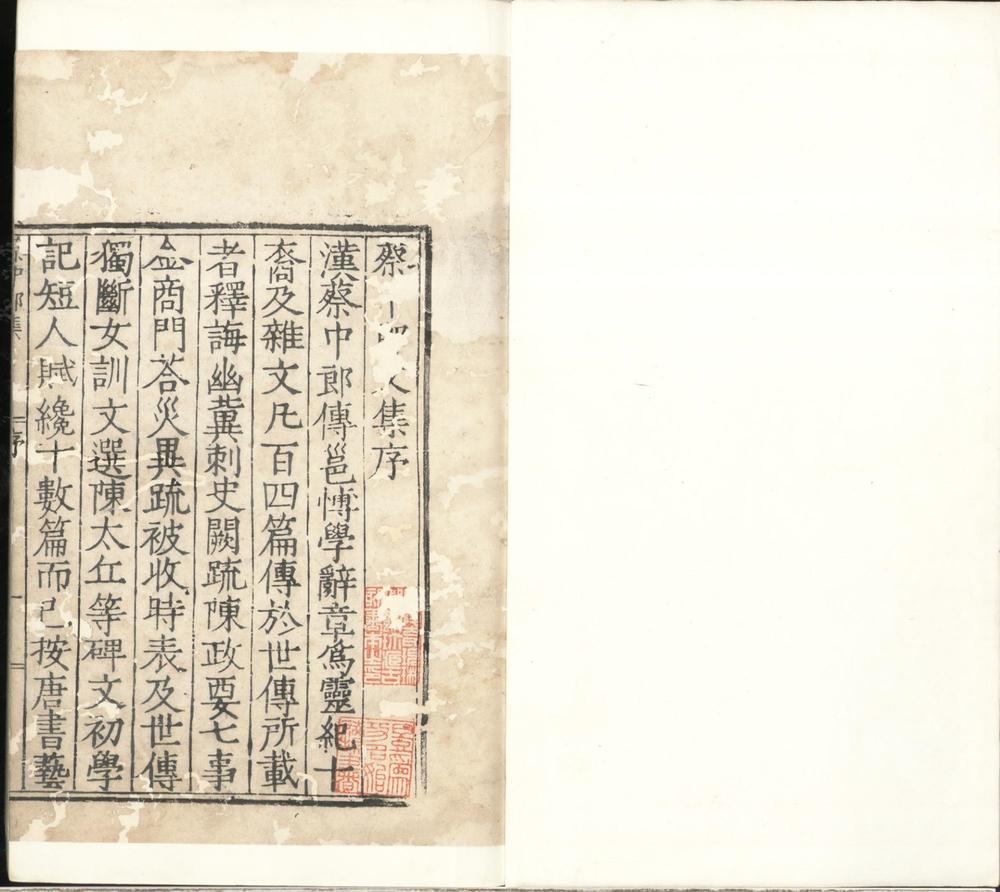 蔡中郎文集序
漢蔡中郎傳邕愽學辭章爲靈紀十
裔及雜文凡百四篇傳於世傳所載
者釋誨幽冀刺史闕疏陳政要七事
金商門荅災異疏被收時表及世傳
獨斷女訓文選陳太丘等碑文初學
記短人賦纔十數篇而已按唐書藝
序
一